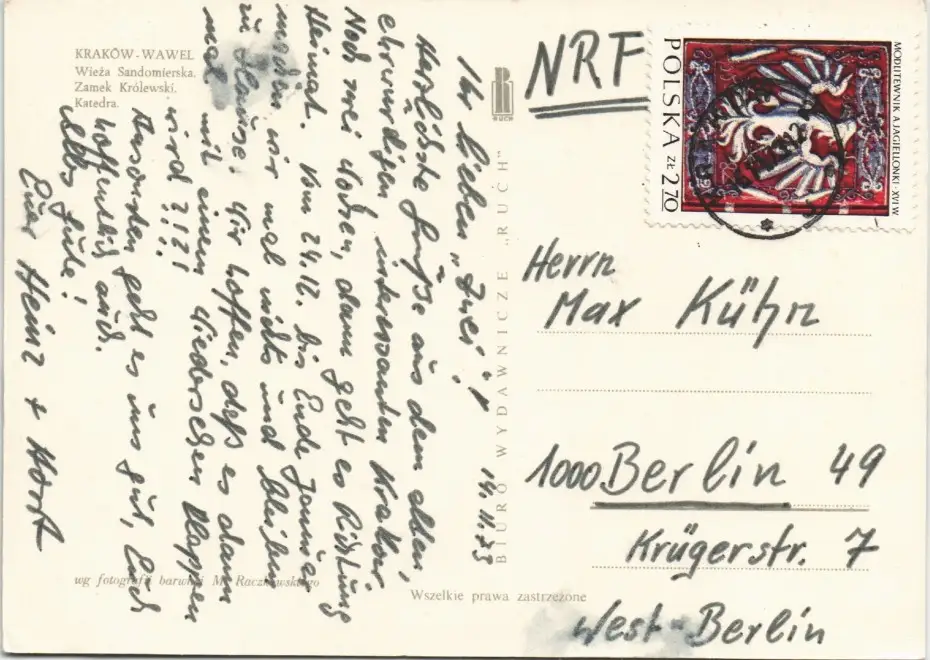 KRAKÓW - WAWEL
Wieża Sandomierska.
Zamek Królewski.
Katedra.
14.11.73
Ihr lieben „Zwei"!
Herzlichste Grüße aus dem alten
ehrwürdigen interessanten Krakau.
Noch zwei Wochen, dann geht es Richtung
Heimat. Vom 24.12. bis Ende Januar
machen wir mal nichts und bleiben
zu Hause. Wir hoffen, daß es dann
mal mit einem Wiedersehen klappen
wird?!?!
Ansonsten geht es uns gut, Euch
hoffentlich auch.
Alles Gute!
Euer Heinz + Horst
wg fotografii barwnej M. Raczkowskiego
Wszelkie prawa zastrzeżone
BIURO WYDAWNICZE „RUCH"
RUCH
NRF
POLSKA zł 2.70
MODLITEWNIK A. JAGIELLONKI - XVI W.
Herrn
Max Kühn
1000 Berlin 49
Krügerstr. 7
West-Berlin